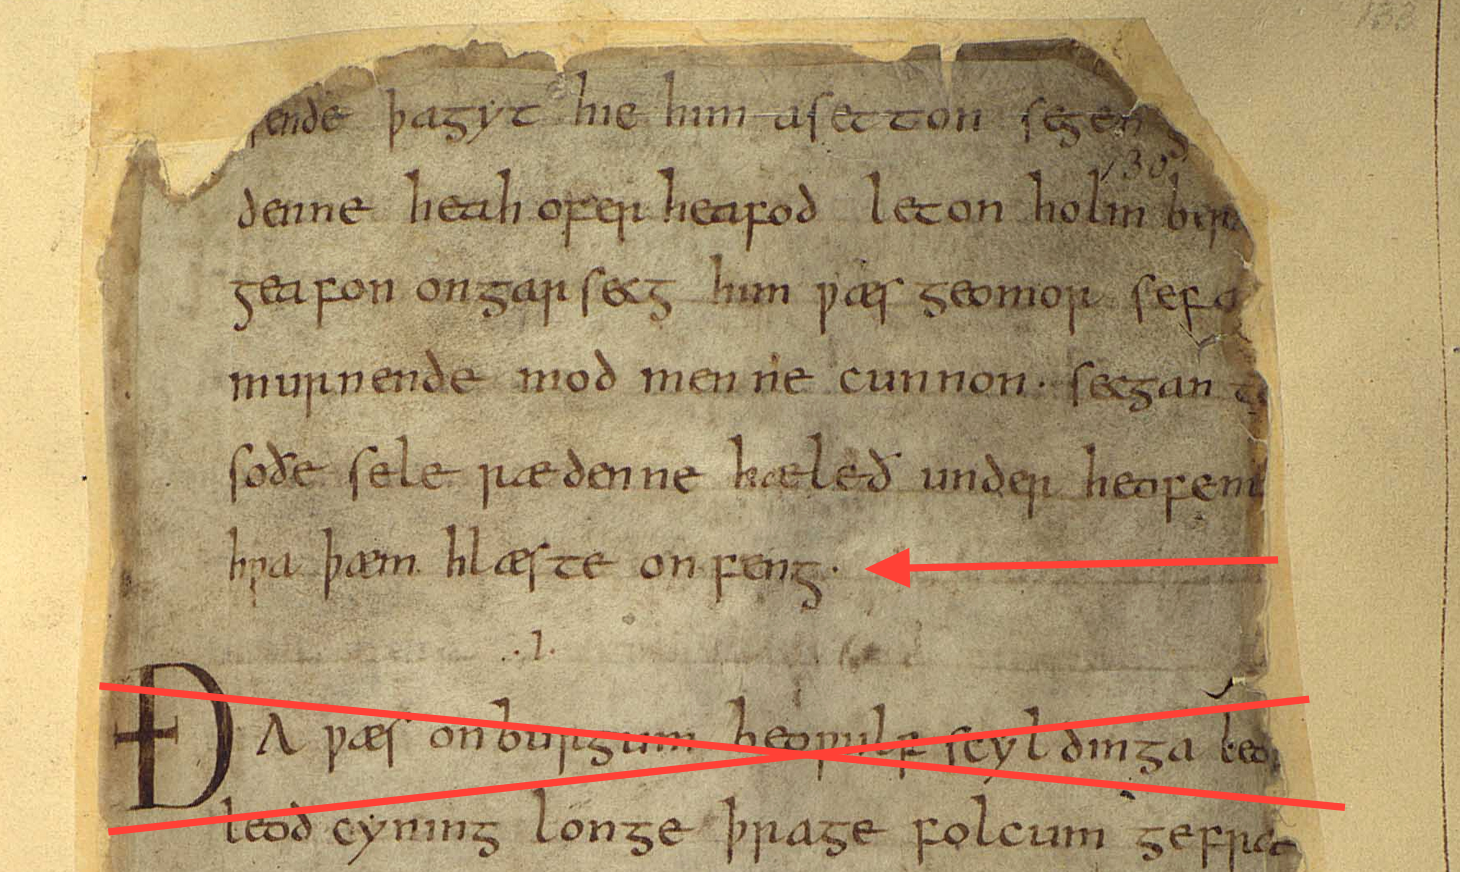 sende þagyt hie him asetton segen g
130
denne heah ofer heafod leton holm ber
geafon ongarsecg him ƿæs geomor sefa
murnende mod men ne cunnon· secgan t
soðe sele rædenne hæleð under heofen
hƿa þæm hlæste onfeng·
·I·
ÐA ƿæs onburgum beoƿulf scyldinga leo
leod cyning longe þrage folcum gefræ